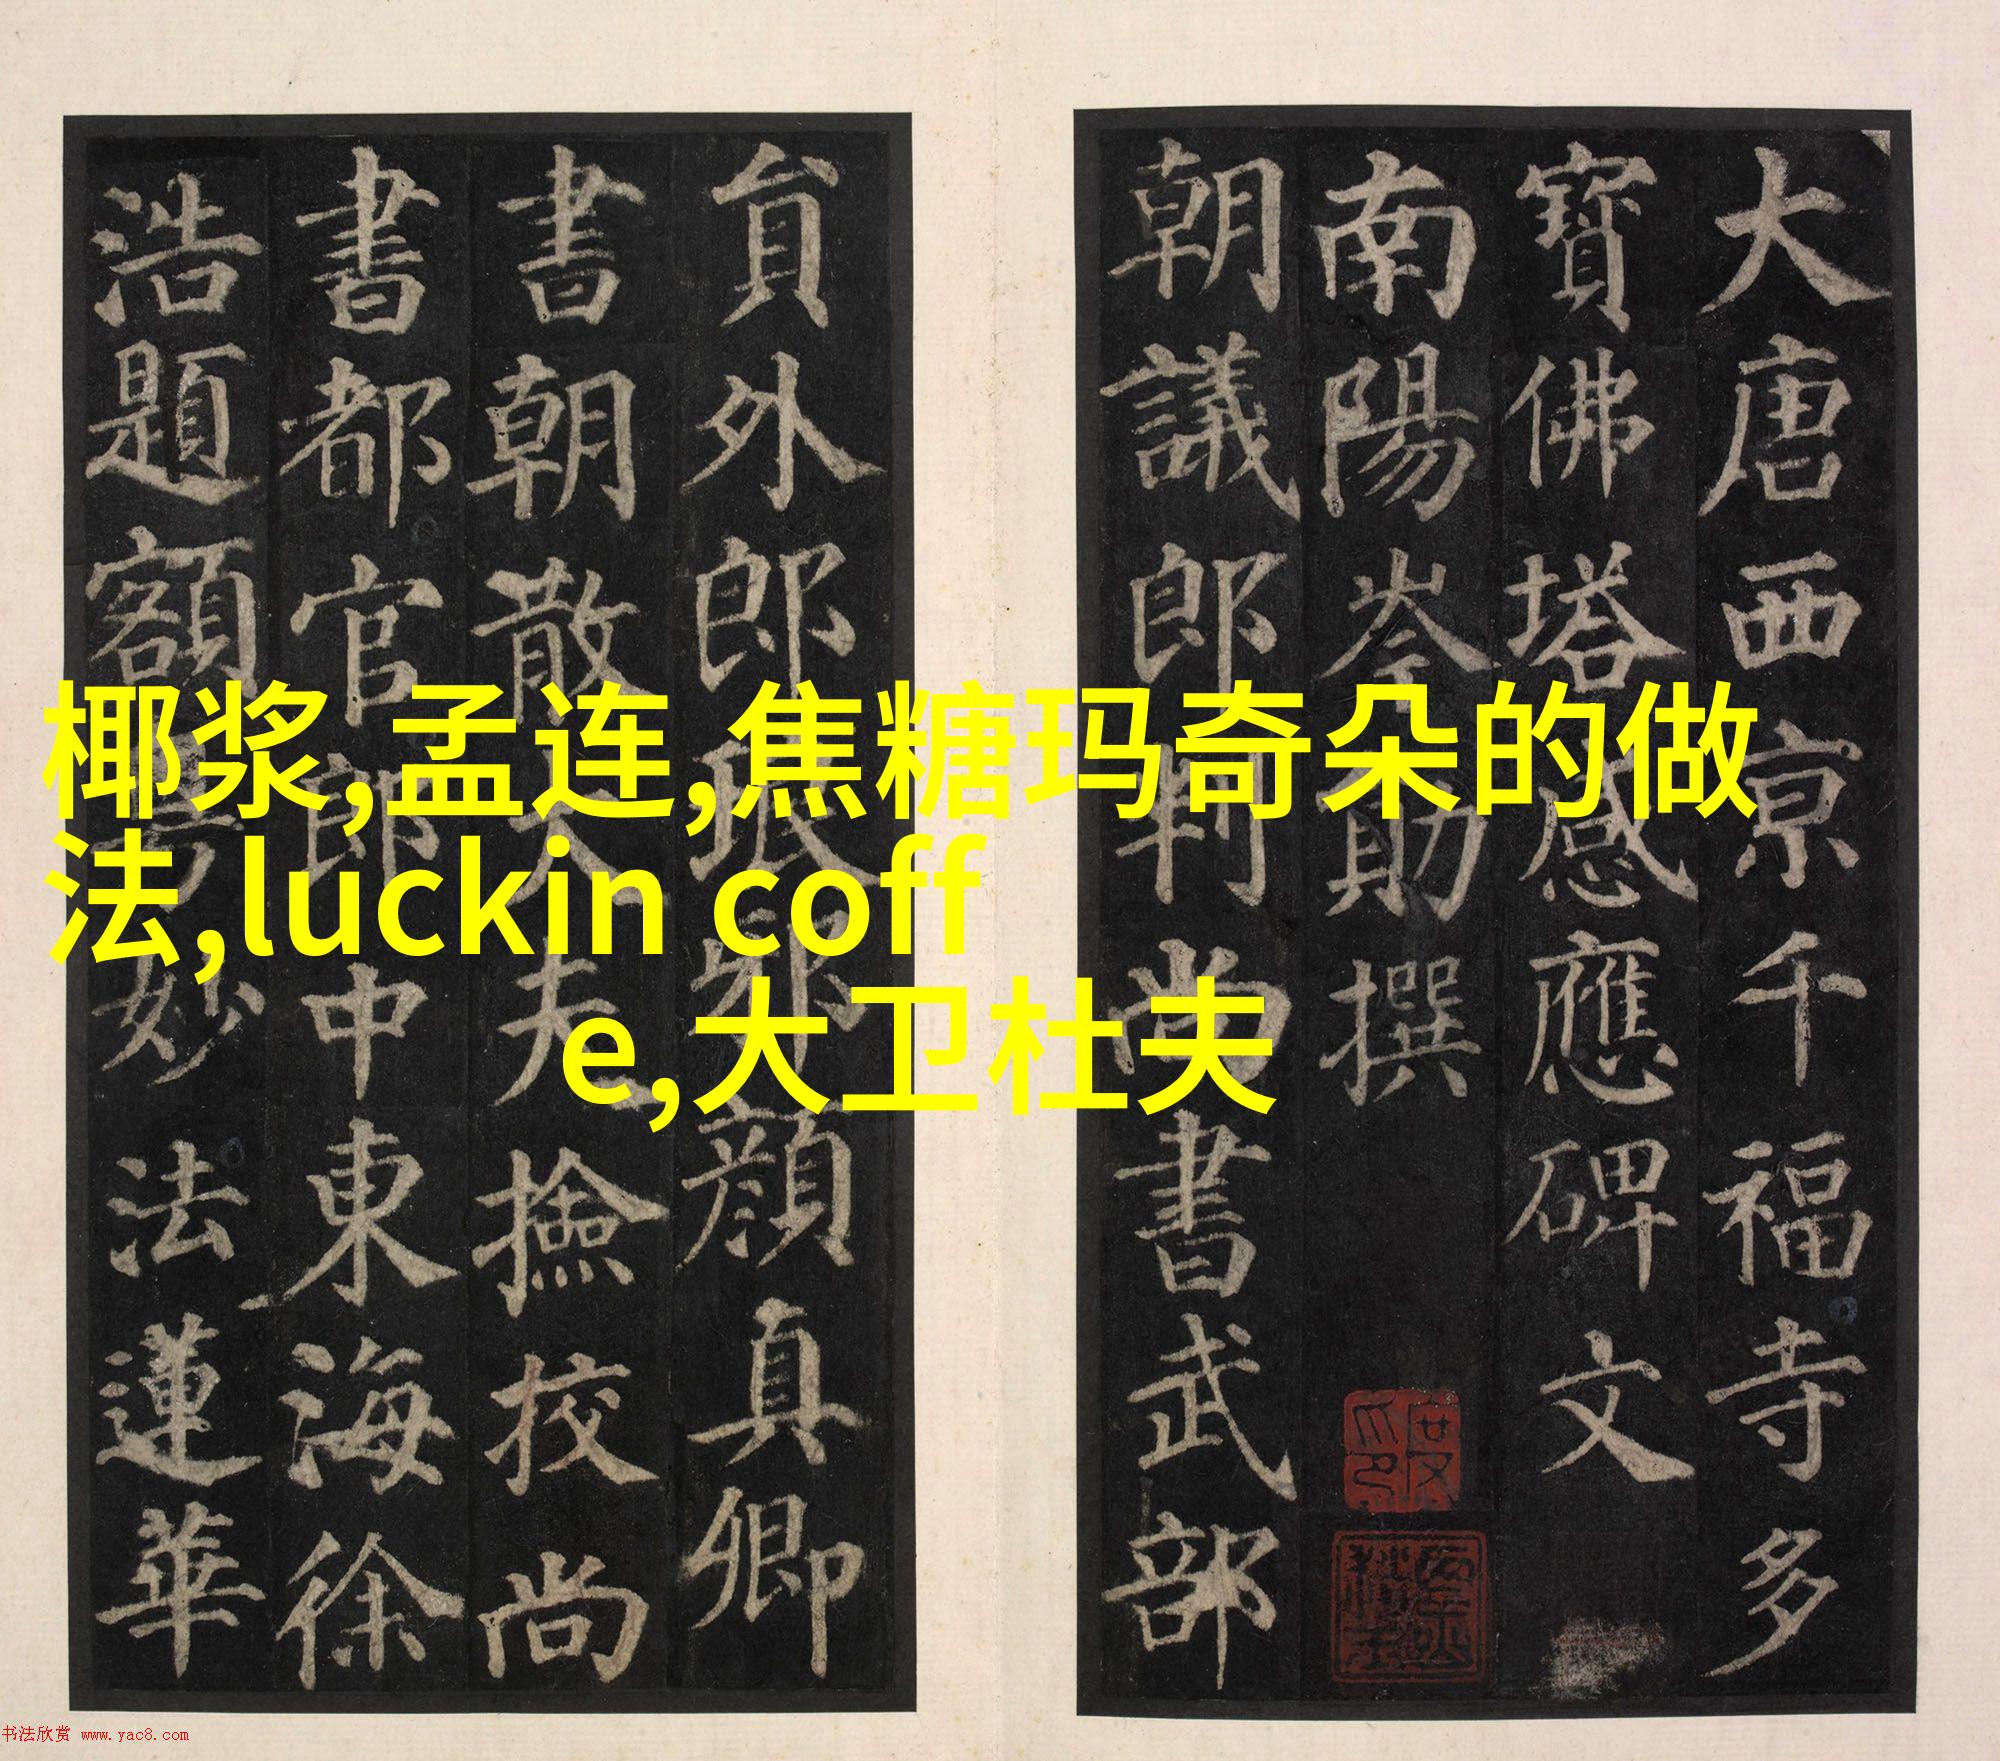 大唐西京千福寺多
寶佛塔感應碑文
南陽岑勛撰
朝議郎判尚書武部
貟外郎琅邪顏真卿
書朝散大夫撿校尚
書都官郎中東海徐
浩題額妙法蓮華
椰浆,孟连,焦糖玛奇朵的做
法,luckin coff
e,大卫杜夫
书法欣赏 www.yac8.com